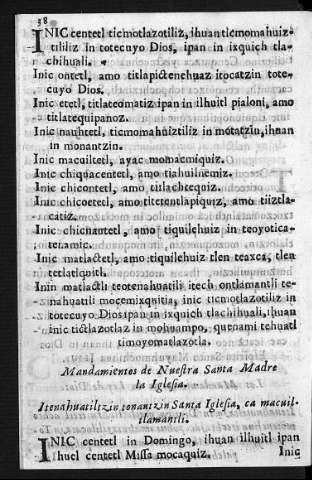 38
INIC centetl ticmotlazotiliz, ihuan ticmomahuiz-
tililiz In totecuyo Dios, ipan in ixquich tla-
chihuali.
Inic ontetl, amo titlapictenehuaz itocatzin tote-
cuyo Dios.
Inic etetl, titlateomatiz ipan in ilhuitl pialoni, amo
titlatequipanoz.
Inic nauhtetl, ticmomahuiztiliz in motatzin, ihuan
in monantzin.
Inic macuiltetl, ayac mohacmiquiz.
Inic chiquacentetl, amo tiahuilnemiz.
Inic chicontetl, amo titlachtequiz.
Inic chicoetetl, amo titetentlapiquiz, amo tiiztla-
catiz.
Inic chicnauhtetl, amo tiquilehuiz in teoyotica-
tenamic.
Inic matlactetl, amo tiquilehuiz tlen teaxca, tlen
tetlatiquitl.
Inin matlactli teotenahuatili itech ontlamantli te-
nahuatili mocemixquitia, inic ticmotlazotiliz in
totecuyo Dios ipan in ixquich tlachihuali, ihuan
inic tictlazotlaz in mohuampo, quenami tehuatl
timoyomatlazotla.
Mandamientos de Nuestra Santa Madre
la Iglesia.
Itenahuatiltzin tonantzin Santa Iglesia, ca macuil-
tlamantli.
INIC centetl in Domingo, ihuan ilhuitl ipan
huel centetl Missa mocaquiz. Inic